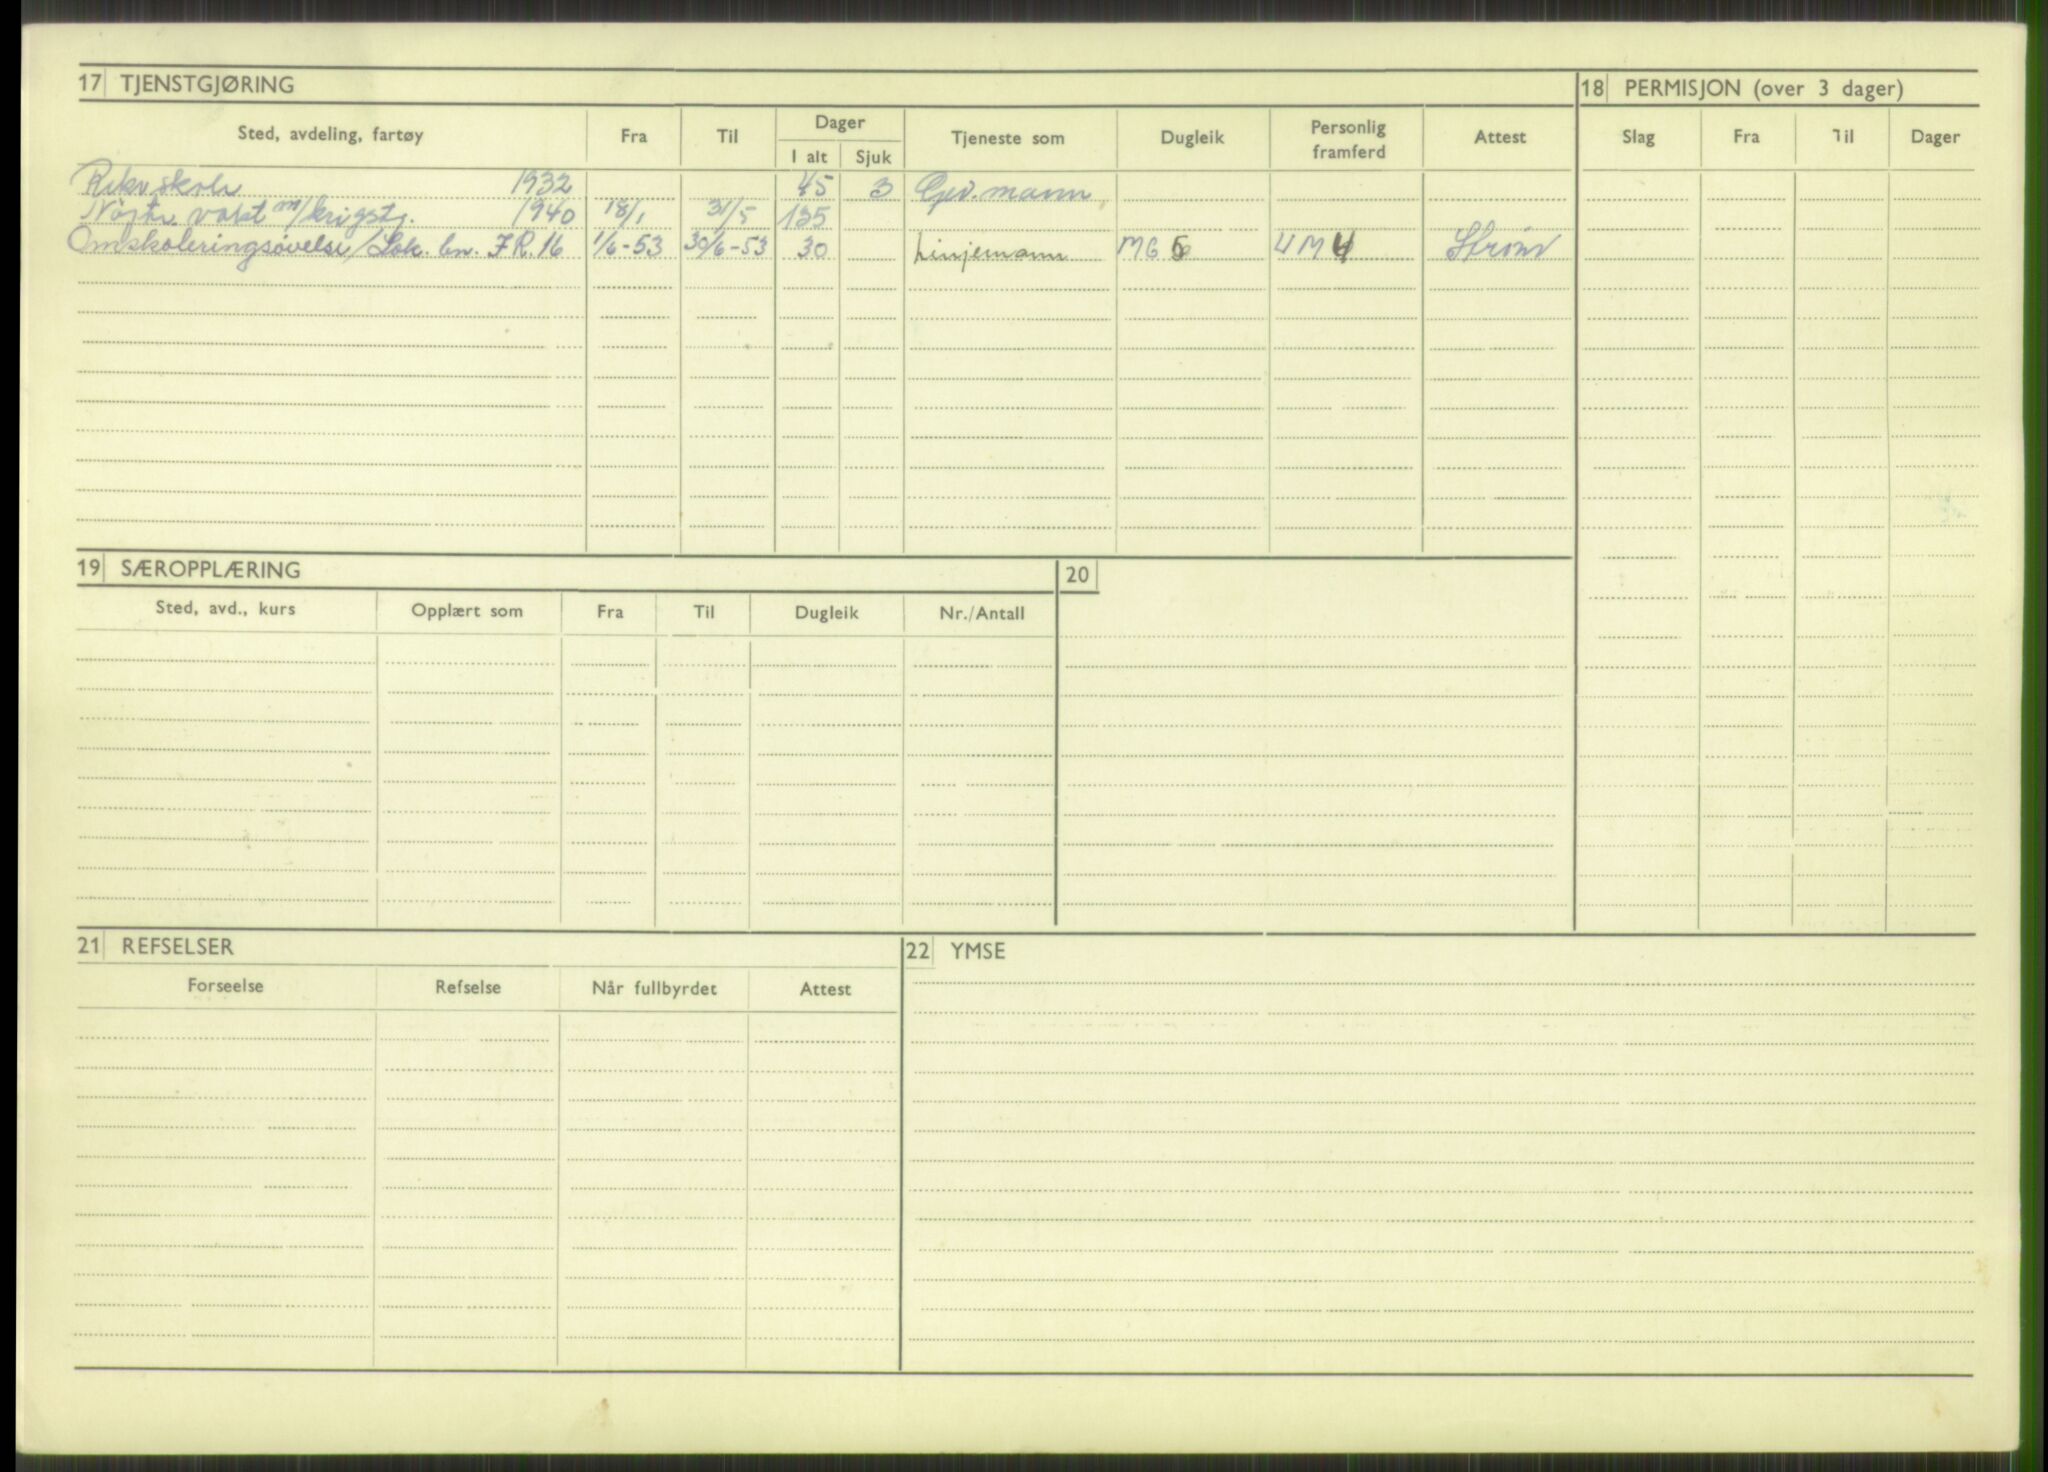 17 TJENSTGJØRING
18 PERMISJON (over 3 dager)
Sted, avdeling, fartøy Fra Til Dager Tjeneste som Dugleik Personlig framferd Attest Slag Fra Til Dager
I alt Sjuk
Rekr.skole 1932 45 3 Gev.mann
Nøytr. vakt m/krigstj. 1940 18/1 31/5 135
Omskoleringsøvelse/Lok. bn. IR.16 1/6-53 30/6-53 30 Linjemann MG 5 UM 4
19 SÆROPPLÆRING
20
Sted, avd., kurs Opplært som Fra Til Dugleik Nr./Antall
21 REFSELSER
22 YMSE
Forseelse Refselse Når fullbyrdet Attest